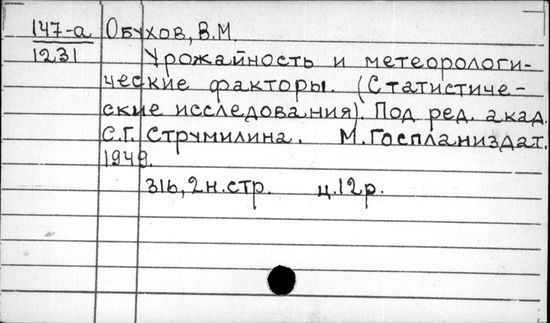 147-а Обухов, В.М.
1231 Урожайность и метеорологи-
ческие факторы. (Статистиче-
ские исследования). Под ред. акад.
С.Г. Струмилина. М. Госпланиздат.
1949.
316, 2н.стр. ц.12р.